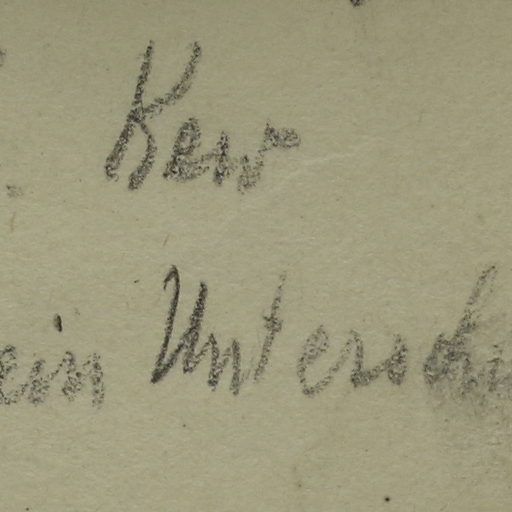 Kew
ein Untersch